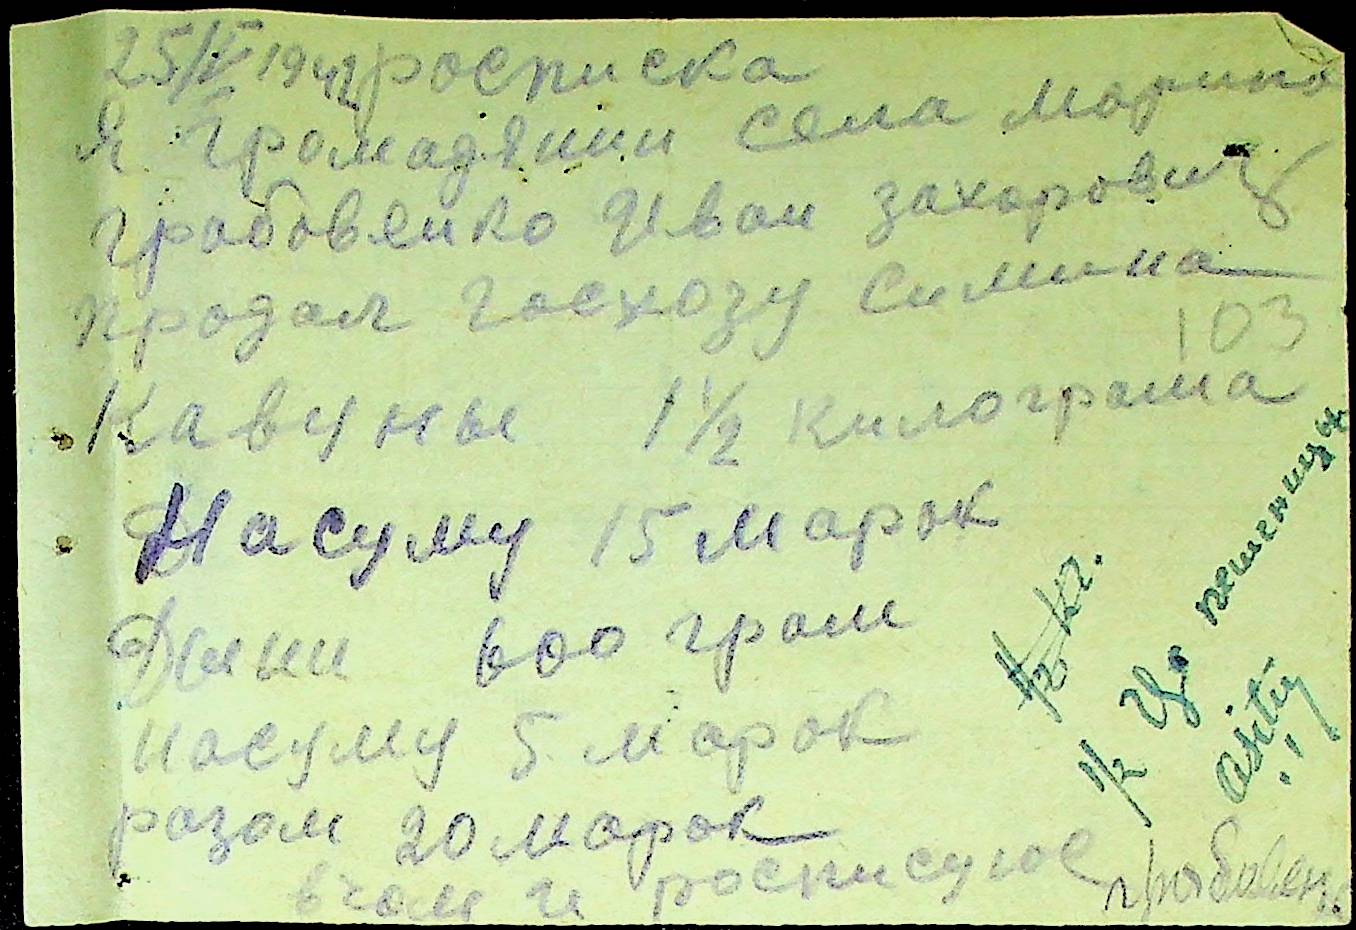 25/V 1942 росписка
Я Громадянин села Марино
Грабовенко Иван захарович
продал госхозу симина
103
Кавуны 1 1/2 килограма
На суму 15 марок
Дыни 600 грам
на суму 5 марок
разом 20 марок
в чом и росписуюс Грабовенко
1/2 кг.
1/2 Цс пшеницы